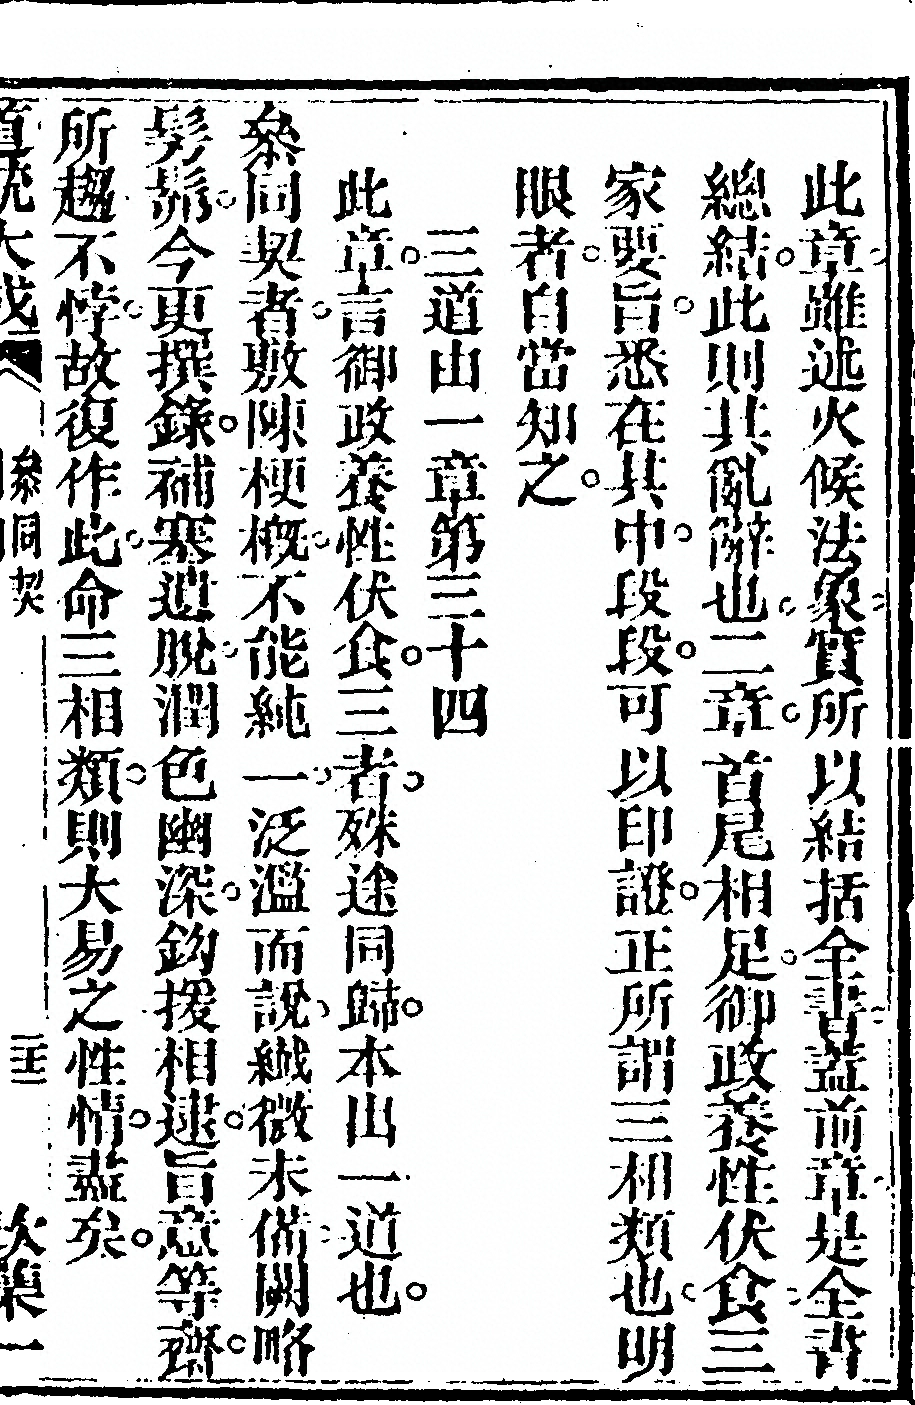 此章雖述火候法象實所以結括全書蓋前章是全書
總結此則其亂辭也二章首尾相足御政養性伏食三
家要旨悉在其中段段可以印證正所謂三相類也明
眼者自當知之
三道由一章第三十四
此章言御政養性伏食三者殊途同歸本出一道也
叅同契者敷陳梗槪不能純一泛濫而說纖微未備闕略
髣髴今更撰錄補塞遺脫潤色幽深鈎援相逮旨意等齊
所趨不悖故復作此命三相類則大易之性情盡矣
道統大成 叅同契 三十二 坎集一